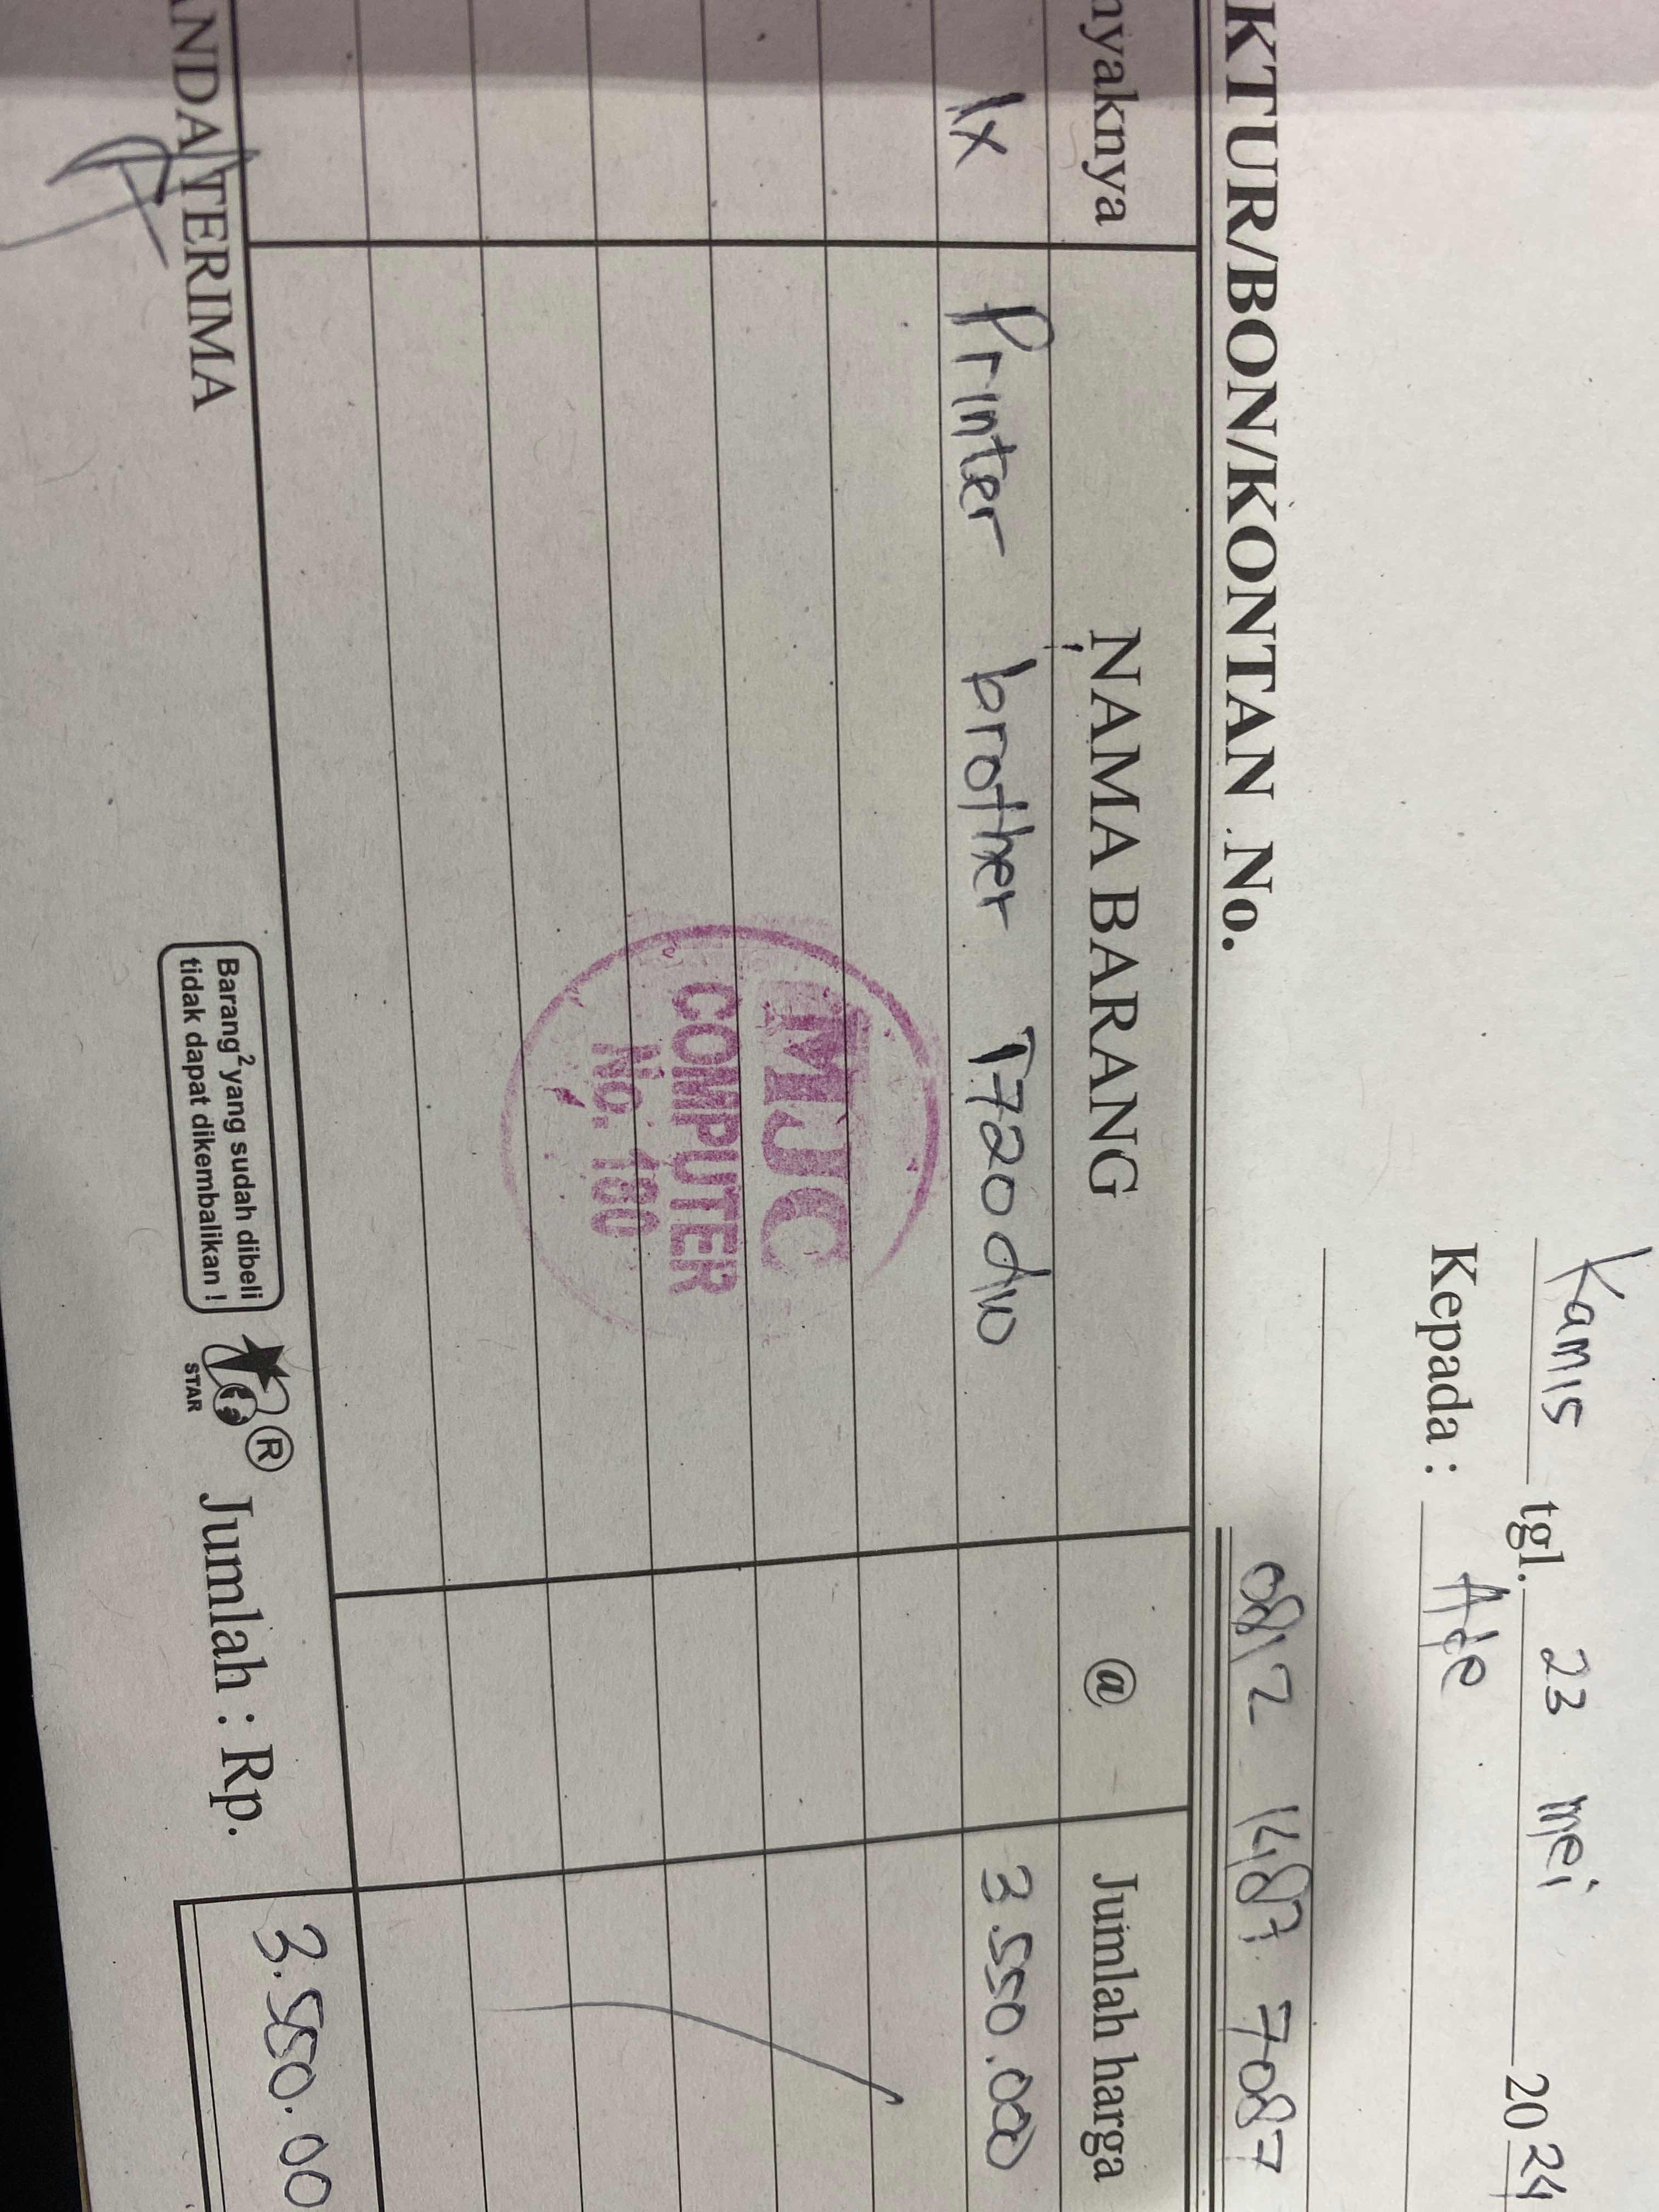 Kamis tgl. 23 mei 2024
Kepada : Ade
0812 1487 7087
KTUR/BON/KONTAN No.
nyaknya NAMA BARANG @ Jumlah harga
1x Printer brother T720dw 3.550.000
MJC
COMPUTER
No. 180
ANDA TERIMA
Barang2 yang sudah dibeli
tidak dapat dikembalikan !
STAR
®
Jumlah : Rp. 3.550.00